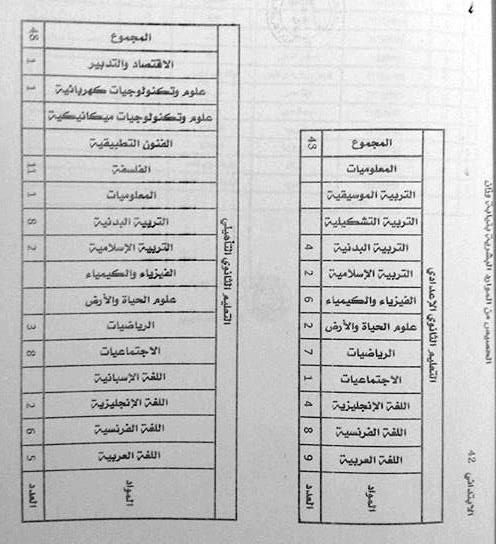 الخصيص من الموارد البشرية بنيابة وزان
الابتدائي 42
التعليم الثانوي الإعدادي
المواد العدد
اللغة العربية 9
اللغة الفرنسية 8
اللغة الإنجليزية 4
الاجتماعيات 1
الرياضيات 7
علوم الحياة والأرض 2
الفيزياء والكيمياء 6
التربية الإسلامية 2
التربية البدنية 4
التربية التشكيلية
التربية الموسيقية
المعلوميات
المجموع 43
التعليم الثانوي التأهيلي
المواد العدد
اللغة العربية 5
اللغة الفرنسية 6
اللغة الإنجليزية 2
اللغة الإسبانية
الاجتماعيات 8
الرياضيات 3
علوم الحياة والأرض
الفيزياء والكيمياء
التربية الإسلامية 2
التربية البدنية 8
المعلوميات 1
الفلسفة 11
الفنون التطبيقية
علوم وتكنولوجيات ميكانيكية
علوم وتكنولوجيات كهربائية 1
الاقتصاد والتدبير 1
المجموع 48